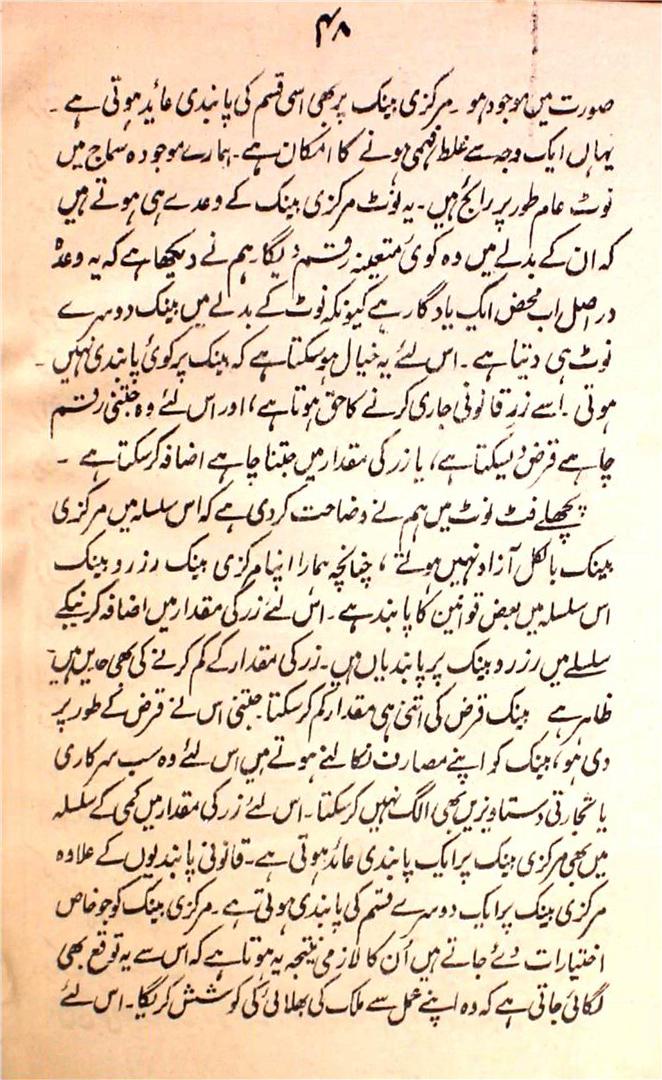 ۴۸
صورت میں موجود ہو۔ مرکزی بینک پر بھی اسی قسم کی پابندی عاید ہوتی ہے۔
یہاں ایک وجہ سے غلط فہمی ہونے کا امکان ہے۔ ہمارے موجودہ سماج میں
نوٹ عام طور پر رائج ہیں۔ یہ نوٹ مرکزی بینک کے وعدے ہی ہوتے ہیں
کہ ان کے بدلے میں وہ کوئی متعینہ رقم دیگا۔ ہم نے دیکھا ہے کہ یہ وعدہ
دراصل اب محض ایک یادگار ہے کیونکہ نوٹ کے بدلے میں بینک دوسرے
نوٹ ہی دیتا ہے۔ اس لئے یہ خیال ہوسکتا ہے کہ بینک پر کوئی پابندی نہیں
ہوتی۔ اسے زرِ قانونی جاری کرنے کا حق ہوتا ہے، اور اس لئے وہ جتنی رقم
چاہے قرض دیسکتا ہے، یا زر کی مقدار میں جتنا چاہے اضافہ کرسکتا ہے۔
پچھلے فٹ نوٹ میں ہم نے وضاحت کردی ہے کہ اس سلسلہ میں مرکزی
بینک بالکل آزاد نہیں ہوتے، چنانچہ ہمارا اپنا مرکزی بینک رزرو بینک
اس سلسلہ میں بعض قوانین کا پابند ہے۔ اس لئے زر کی مقدار میں اضافہ کرنیکے
سلسلے میں رزرو بینک پر پابندیاں ہیں۔ زر کی مقدار کے کم کرنے کی بھی حدیں ہیں۔
ظاہر ہے بینک قرض کی اتنی ہی مقدار کم کرسکتا جتنی اس نے قرض کے طور پر
دی ہو، بینک کو اپنے مصارف نکالنے ہوتے ہیں اس لئے وہ سب سرکاری
یا تجارتی دستاویزیں بھی الگ نہیں کرسکتا۔ اس لئے زر کی مقدار میں کمی کے سلسلہ
میں بھی مرکزی بینک پر ایک پابندی عائد ہوتی ہے۔ قانونی پابندیوں کے علاوہ
مرکزی بینک پر ایک دوسرے قسم کی پابندی ہوتی ہے۔ مرکزی بینک کو جو خاص
اختیارات دئے جاتے ہیں اُن کا لازمی نتیجہ یہ ہوتا ہے کہ اس سے یہ توقع بھی
لگائی جاتی ہے کہ وہ اپنے عمل سے ملک کی بھلائی کی کوشش کریگا۔ اس لئے